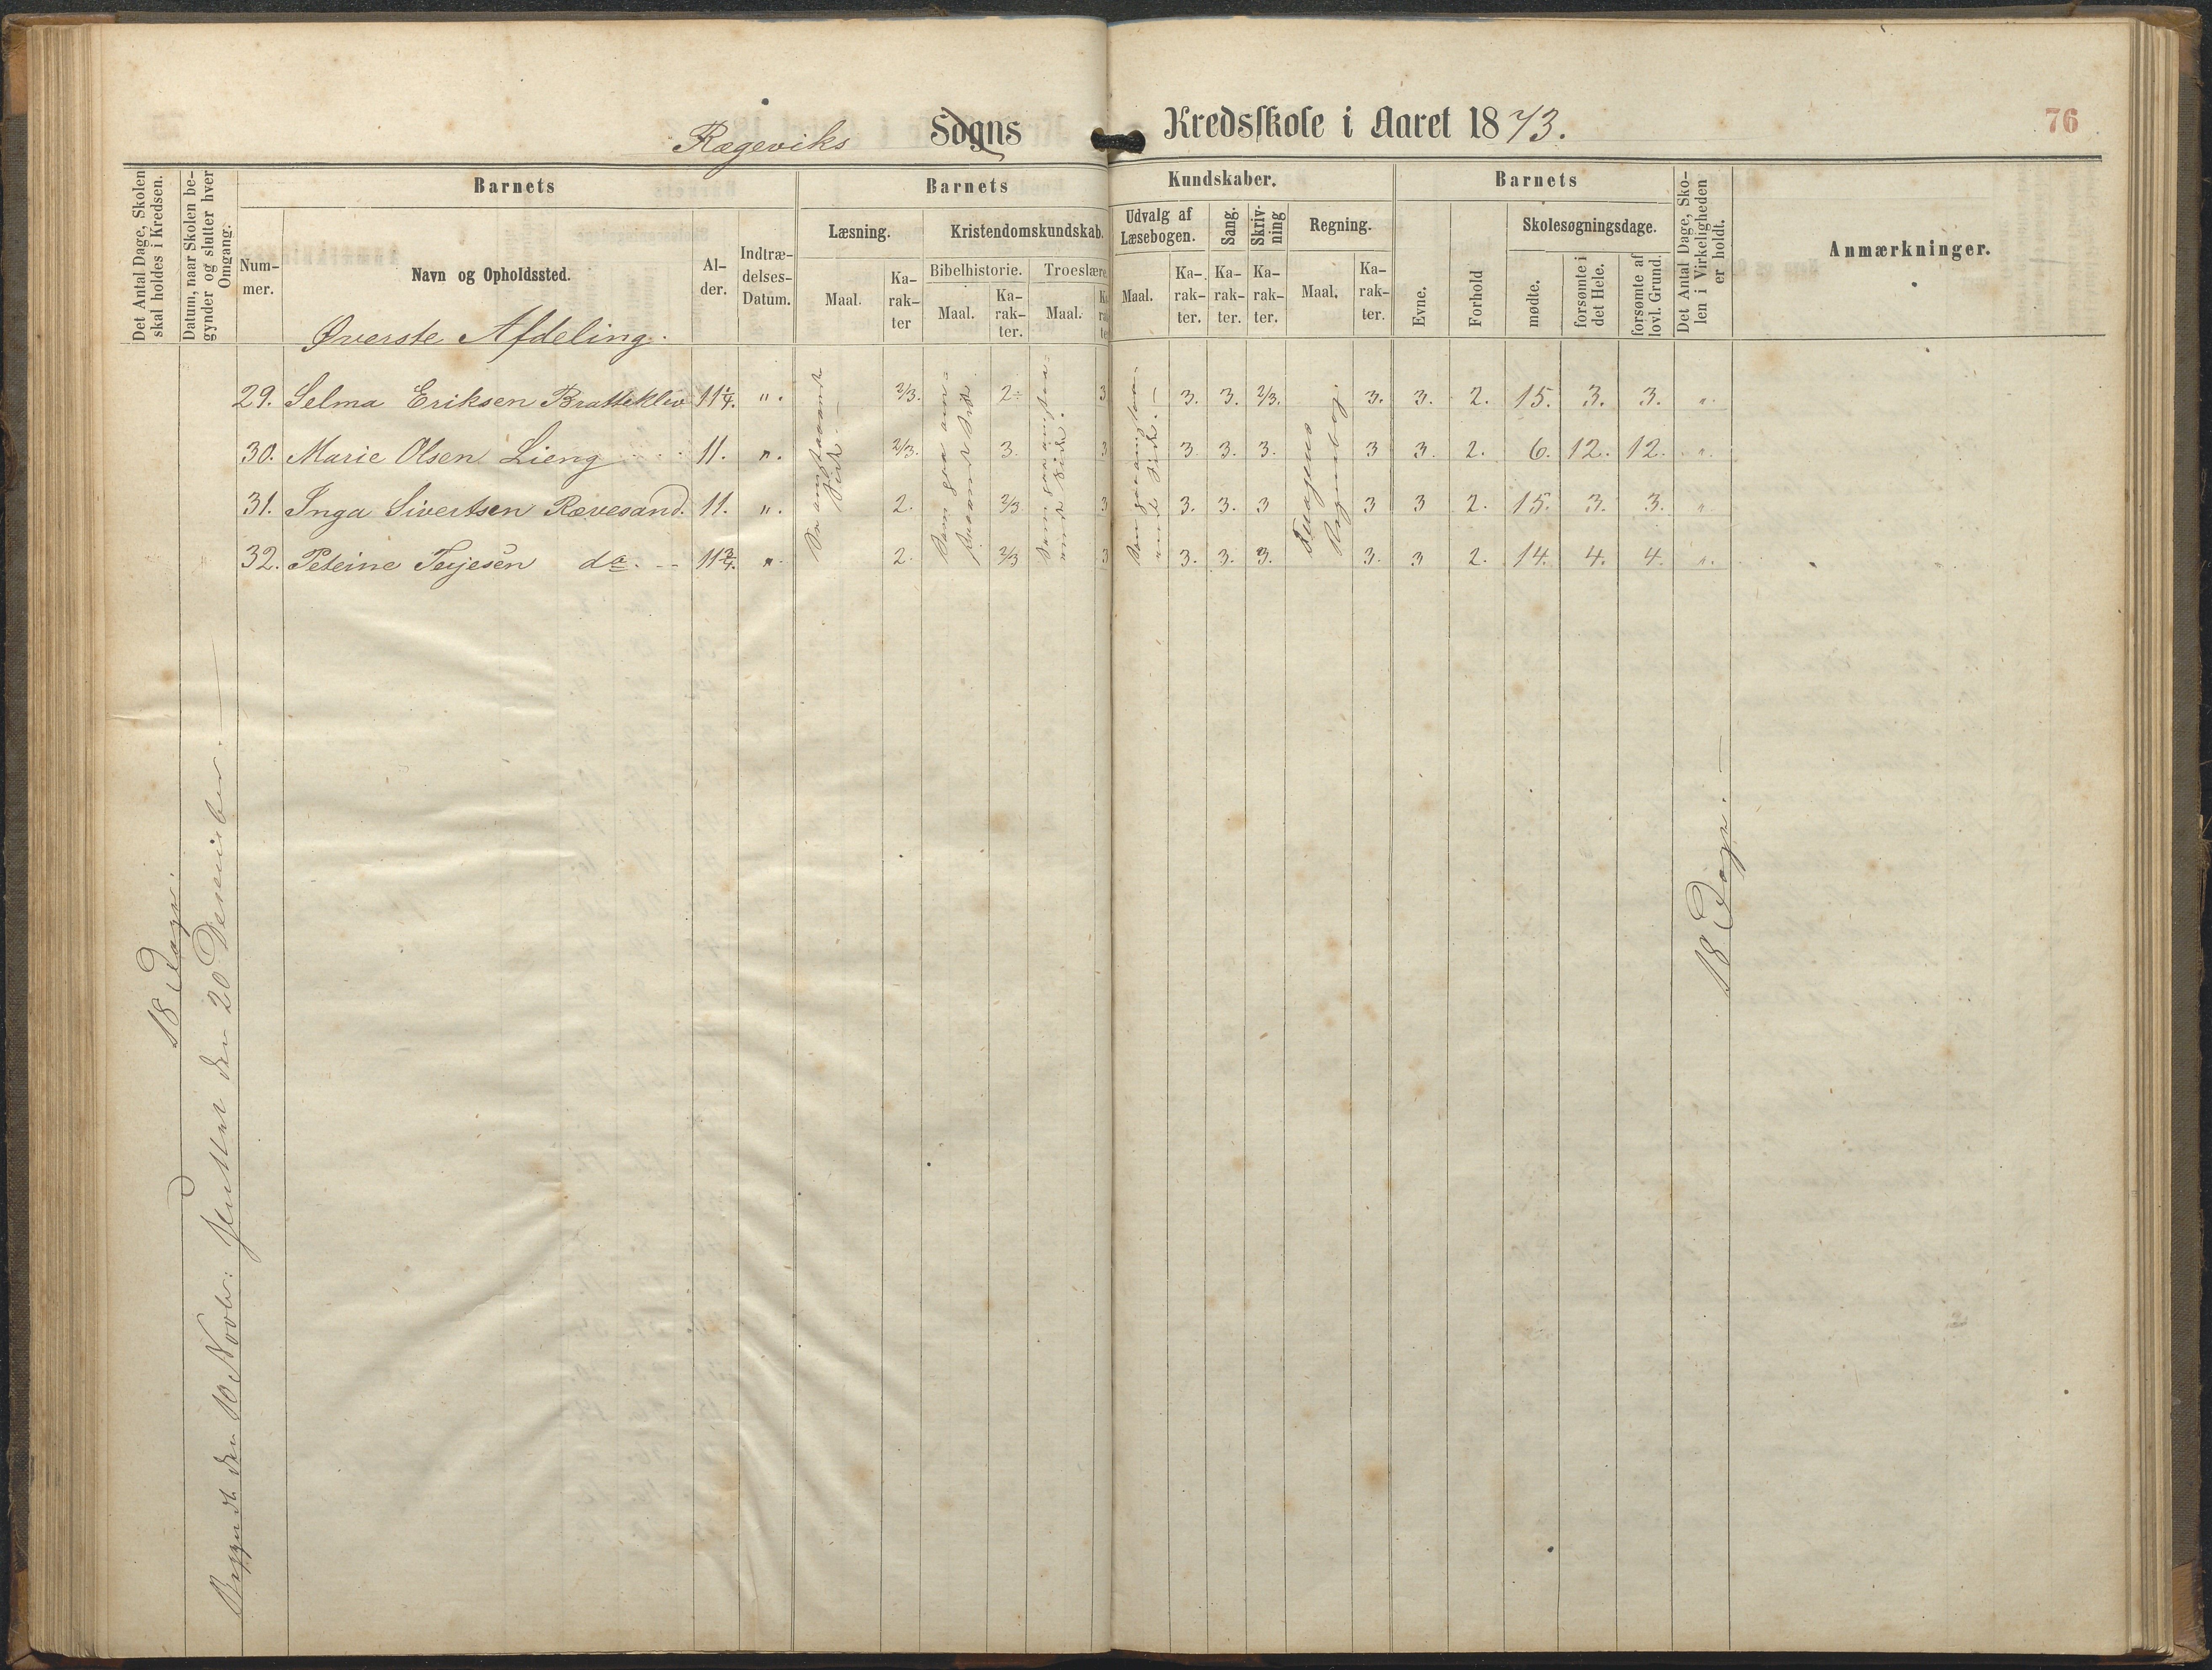 Rægeviks Sogns Kredsskole i Aaret 1873.
76
Det Antal Dage, Skolen skal holdes i Kredsen.
Datum, naar Skolen begynder og slutter hver Omgang.
Barnets
Barnets
Kundskaber.
Barnets
Det Antal Dage, Skolen i Virkeligheden er holdt.
Anmærkninger.
Nummer.
Navn og Opholdssted.
Alder.
Indtrædelses-Datum.
Læsning.
Kristendomskundskab.
Udvalg af Læsebogen.
Sang.
Skrivning
Regning.
Evne.
Forhold
Skolesøgningsdage.
Maal.
Karakter
Bibelhistorie.
Troeslære.
Maal.
Karakter.
Maal.
Maal.
Karakter.
Karakter.
Karakter.
Maal.
Karakter.
mødte.
forsømte i det Hele.
forsømte af lovl. Grund.
Øverste Afdeling.
29. Selma Eriksen Bratteklev 11 1/4. ". 2/3. 2÷ 3 3. 3. 2/3. 3. 3. 2. 15. 3. 3. ".
30. Marie Olsen Lieng 11. ". 2/3. 3. 3 3. 3. 3. 3 3. 2. 6. 12. 12. ".
31. Inga Sivertsen Rævesand. 11. ". 2. 2/3 3 3. 3. 3 3 3 2. 15. 3. 3. "
32. Peteine Terjesen do. 11 3/4. ". 2. 2/3 3 3. 3. 3. 3. 3 2. 14. 4. 4. ".
18 Dage.
Begyndt den 10 Novbr: sluttet den 20 Desember.
18 Dage.